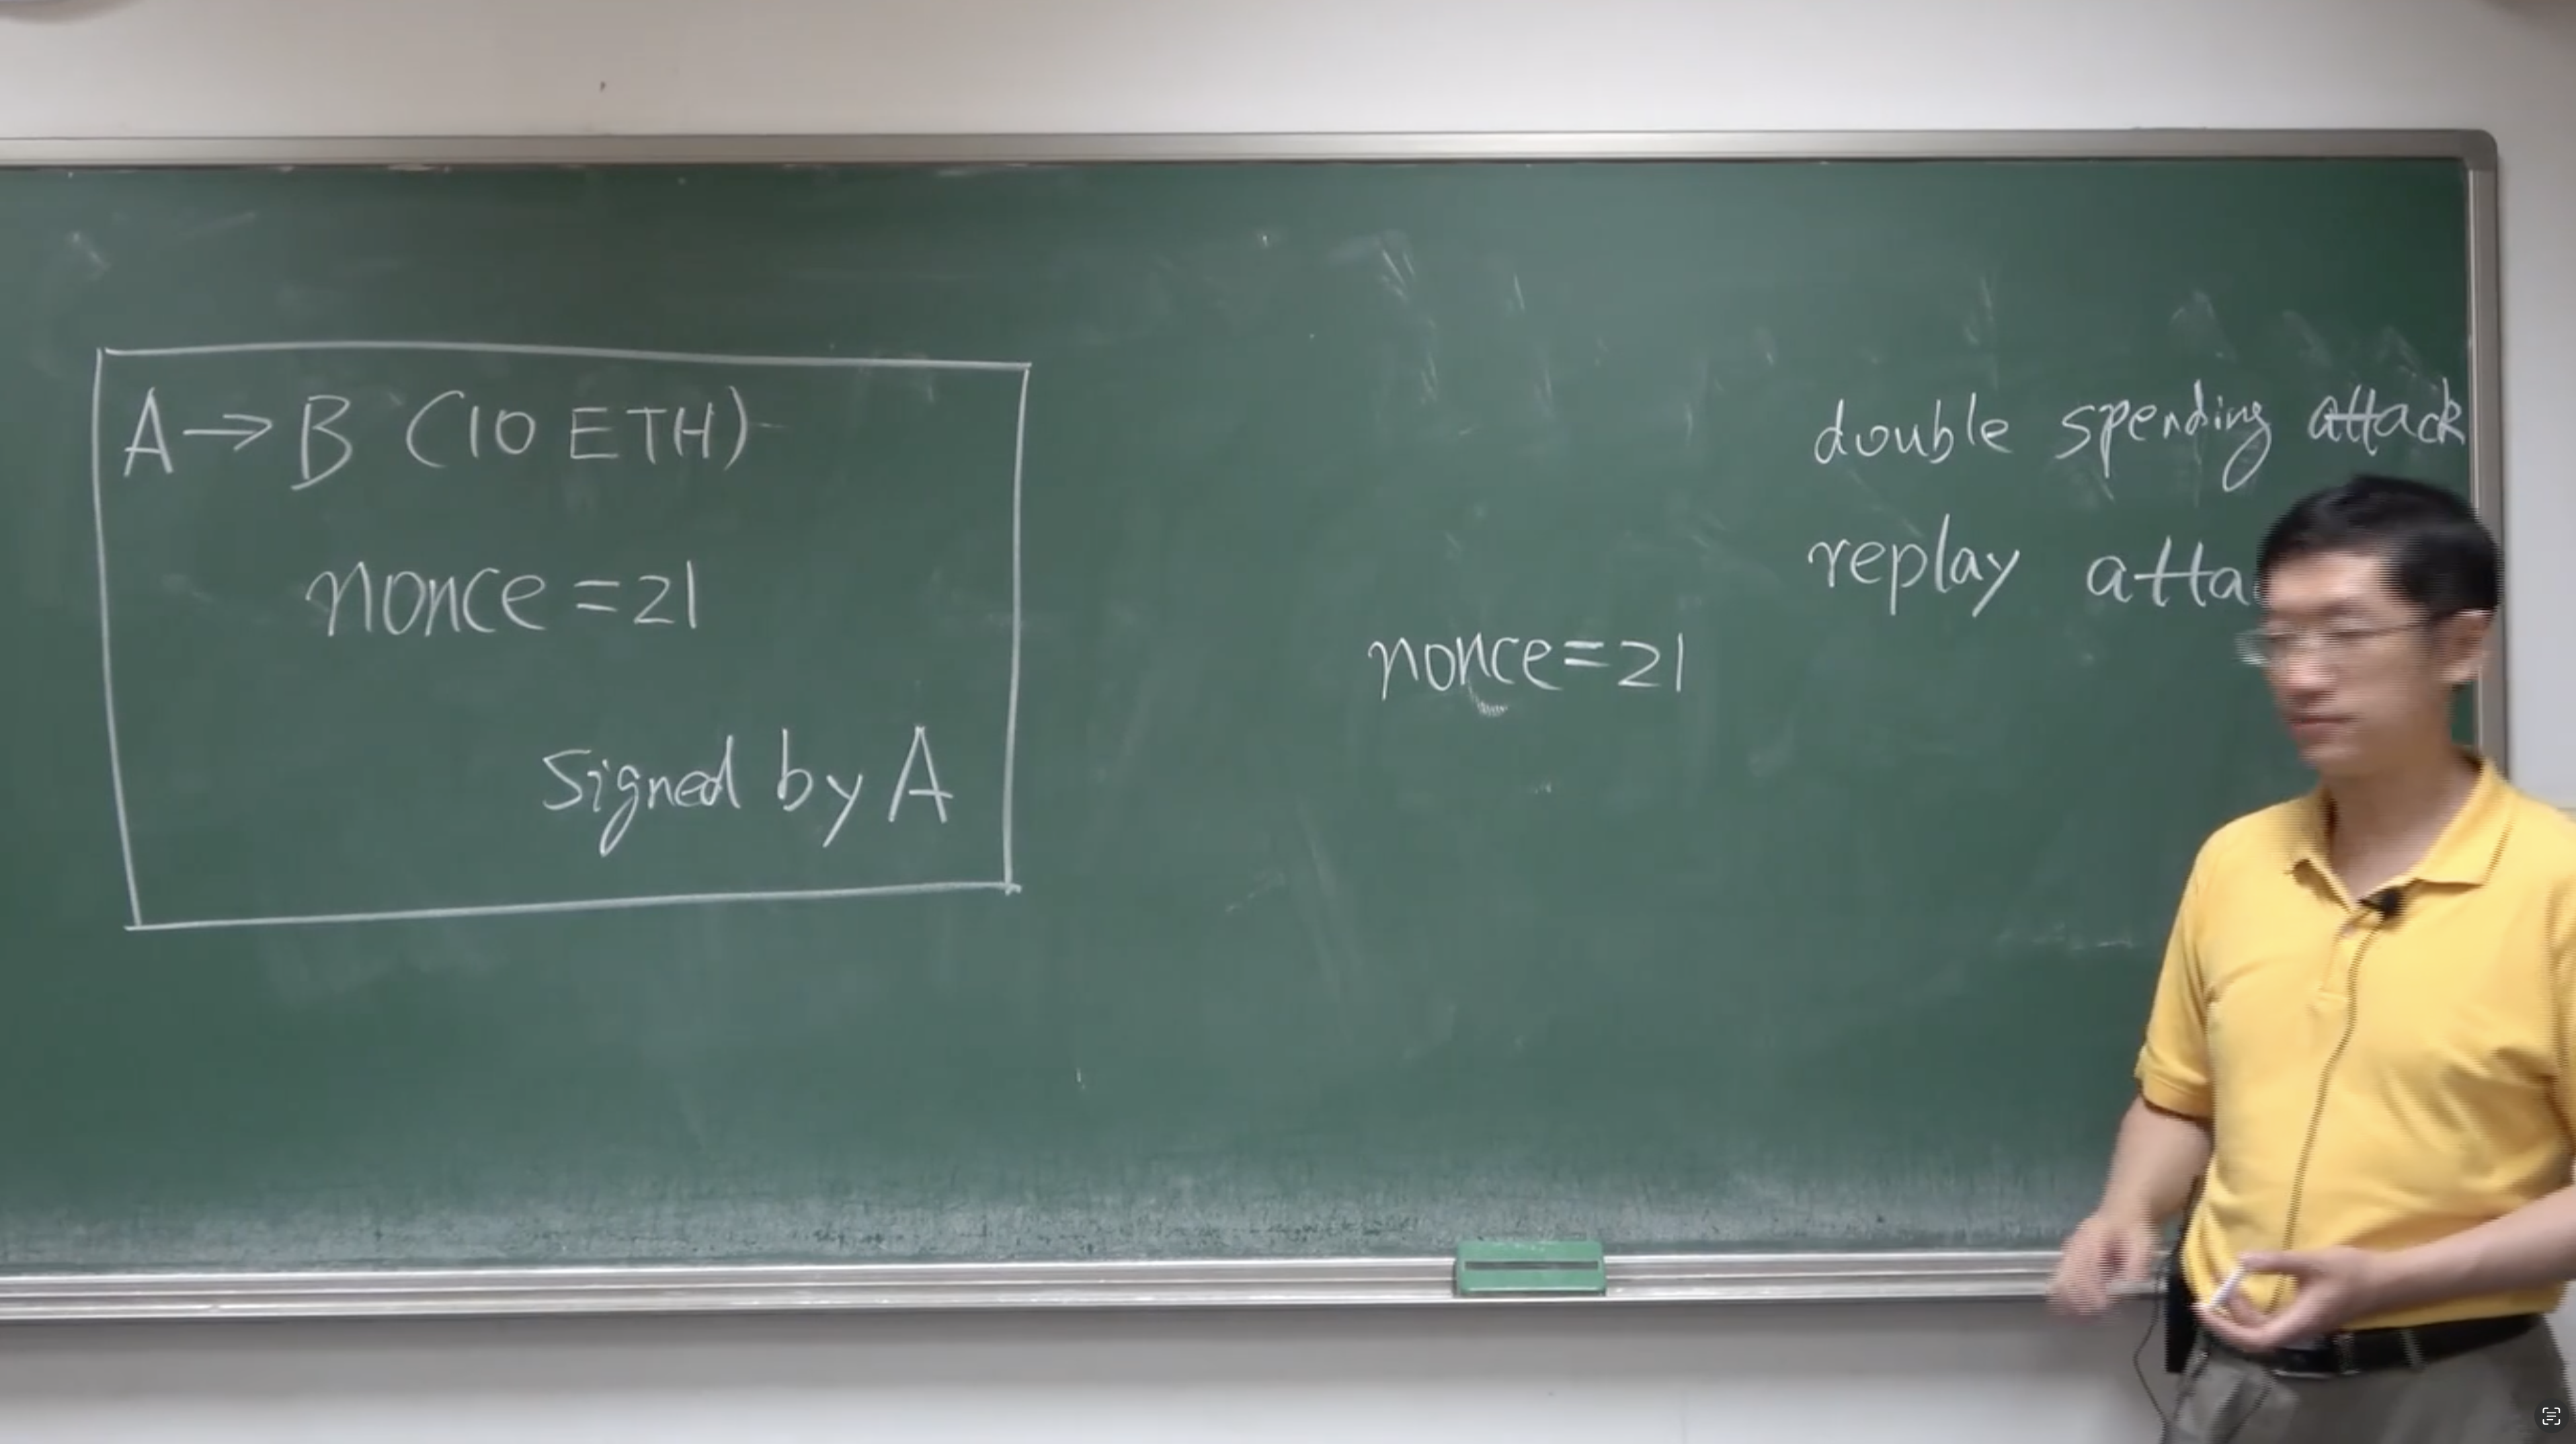 A → B (10 ETH)
nonce = 21
Signed by A
nonce = 21
double spending attack
replay